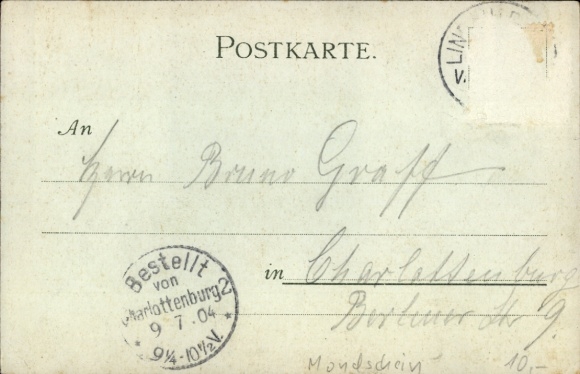 POSTKARTE.
LIN
V.
An
Herrn Bruno Graff
in Charlottenburg
Berliner Str 9.
Bestellt
von
Charlottenburg 2
9 7.04
* 9¼-10½V. *
Mondschein 10,-